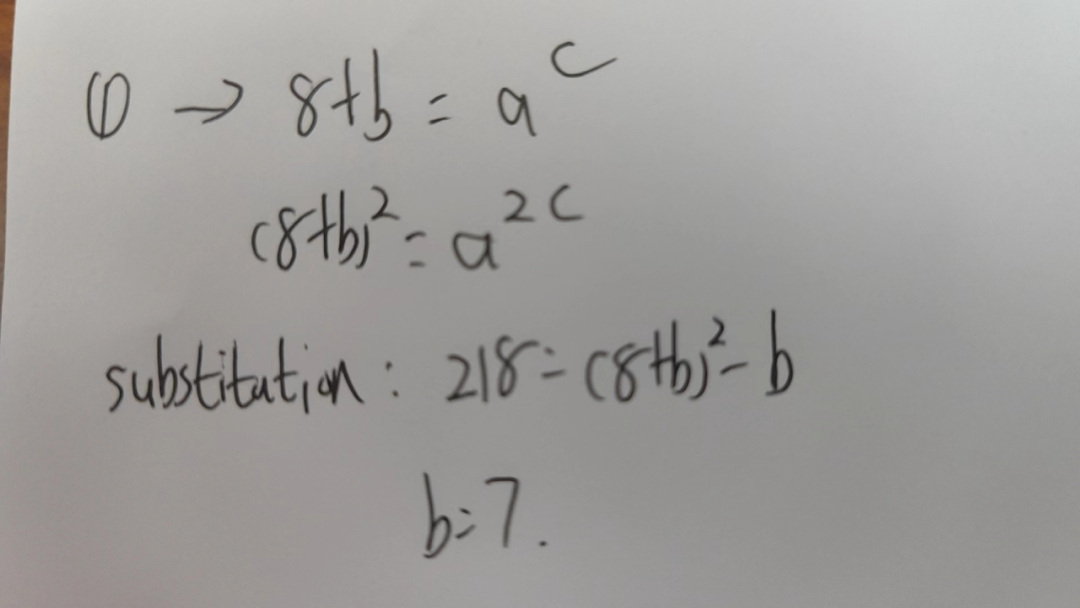 ① → 8+b = a^c
(8+b)^2 = a^{2c}
substitution: 218 = (8+b)^2 - b
b=7.